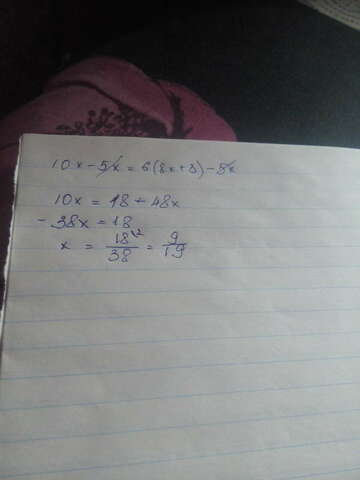 10x - 5x = 6(8x + 3) - 5x
10x = 18 + 48x
- 38x = 18
x = 18\2 / 38 = 9 / 19